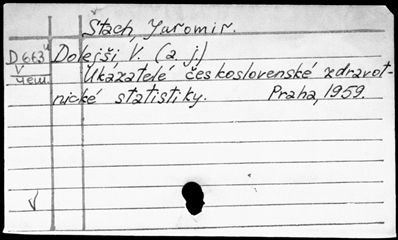 Stach, Jaromir.
D 663 Dolejší V. (a j.)
V Ukazatelé československé zdravot-
čem. nické statistiky. Praha, 1959.
V